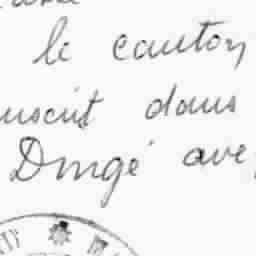 le canton
uscrit dans
Dingé ave